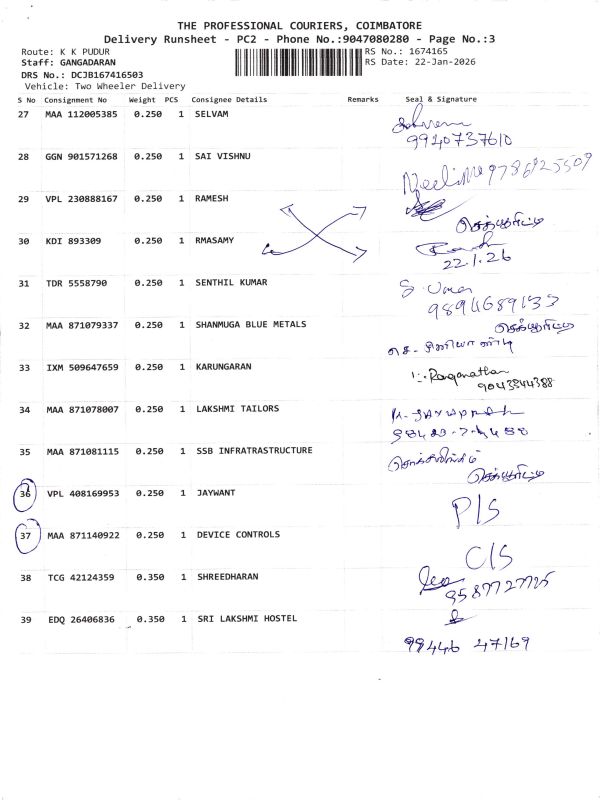 THE PROFESSIONAL COURIERS, COIMBATORE
Delivery Runsheet - PC2 - Phone No.:9047080280 - Page No.:3
Route: K K PUDUR RS No.: 1674165
Staff: GANGADARAN RS Date: 22-Jan-2026
DRS No.: DCJB167416503
Vehicle: Two Wheeler Delivery
S No Consignment No Weight PCS Consignee Details Remarks Seal & Signature
27 MAA 112005385 0.250 1 SELVAM
9940737610
28 GGN 901571268 0.250 1 SAI VISHNU
29 VPL 230888167 0.250 1 RAMESH
30 KDI 893309 0.250 1 RMASAMY
22.1.26
31 TDR 5558790 0.250 1 SENTHIL KUMAR
32 MAA 871079337 0.250 1 SHANMUGA BLUE METALS
33 IXM 509647659 0.250 1 KARUNGARAN
Ranganathan
9043844388
34 MAA 871078007 0.250 1 LAKSHMI TAILORS
35 MAA 871081115 0.250 1 SSB INFRATRASTRUCTURE
36 VPL 408169953 0.250 1 JAYWANT P/S
37 MAA 871140922 0.250 1 DEVICE CONTROLS C/S
38 TCG 42124359 0.350 1 SHREEDHARAN
39 EDQ 26406836 0.350 1 SRI LAKSHMI HOSTEL
99446 47169